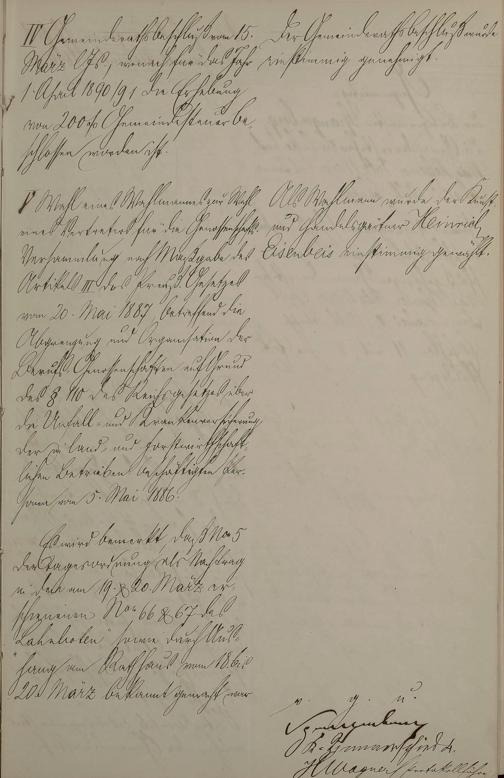 IV Gemeinderathsbeschluß vom 15.
März d/Js, wonach für das Jahr
1. April 1890/91 die Erhebung
von 200 % Gemeindesteuer be-
schlossen worden ist.
Der Gemeinderathsbeschluß wurde
einstimmig genehmigt.
V Wahl eines Wahlmannes zur Wahl
eines Vertreters für die Genossenschafts
Versammlung nach Maßgabe des
Artikels III des Preuß. Gesetzes
vom 20. Mai 1887, betreffend die
Abgrenzung und Organisation der
Berufs Genossenschaften auf Grund
des § 110 des Reichsgesetzes über
die Unfall- und Krankenversicherung
der in land- und forstwirthschaft-
lichen Betrieben beschäftigten Per-
sonen vom 5. Mai 1886.
Als Wahlmann wurde der Kunst
und Handelsgärtner Heinrich
Eisenbeis einstimmig gewählt.
Es wird bemerkt, daß No 5
der Tagesordnung als Nachtrag
in den am 19. & 20. März er-
schienenen Nos 66 & 67 des
Lahnboten sowie durch Aus-
hang am Rathhaus vom 18. bis
20. März bekannt gemacht war
v. g. u.
H. Wagner